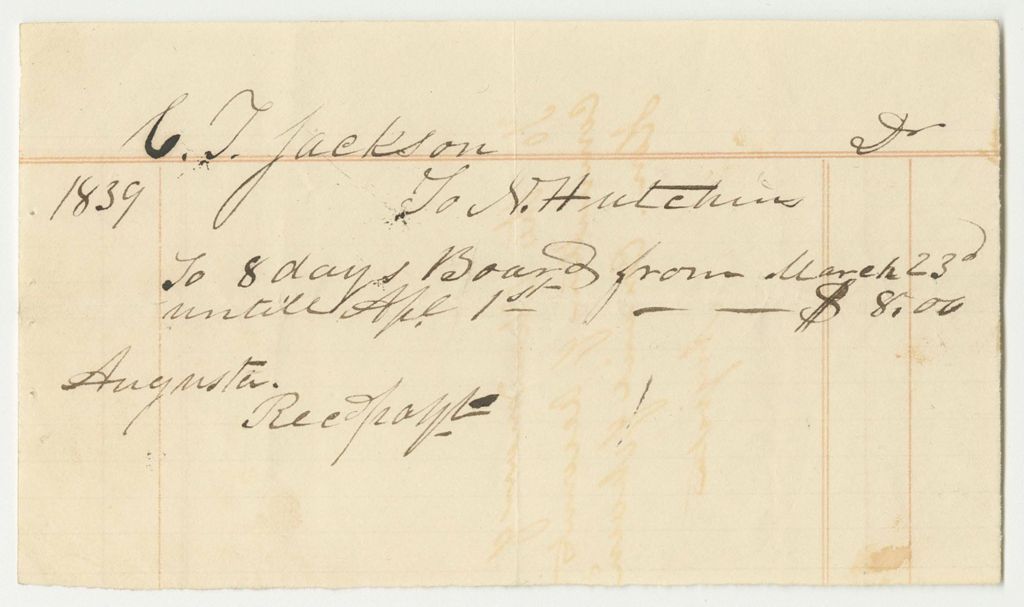 C. T. Jackson Dr
1839 To N. Hutchins
To 8 days Board from March 23d
untill Apl 1st — — $ 8.00
Augusta.
Recd payt